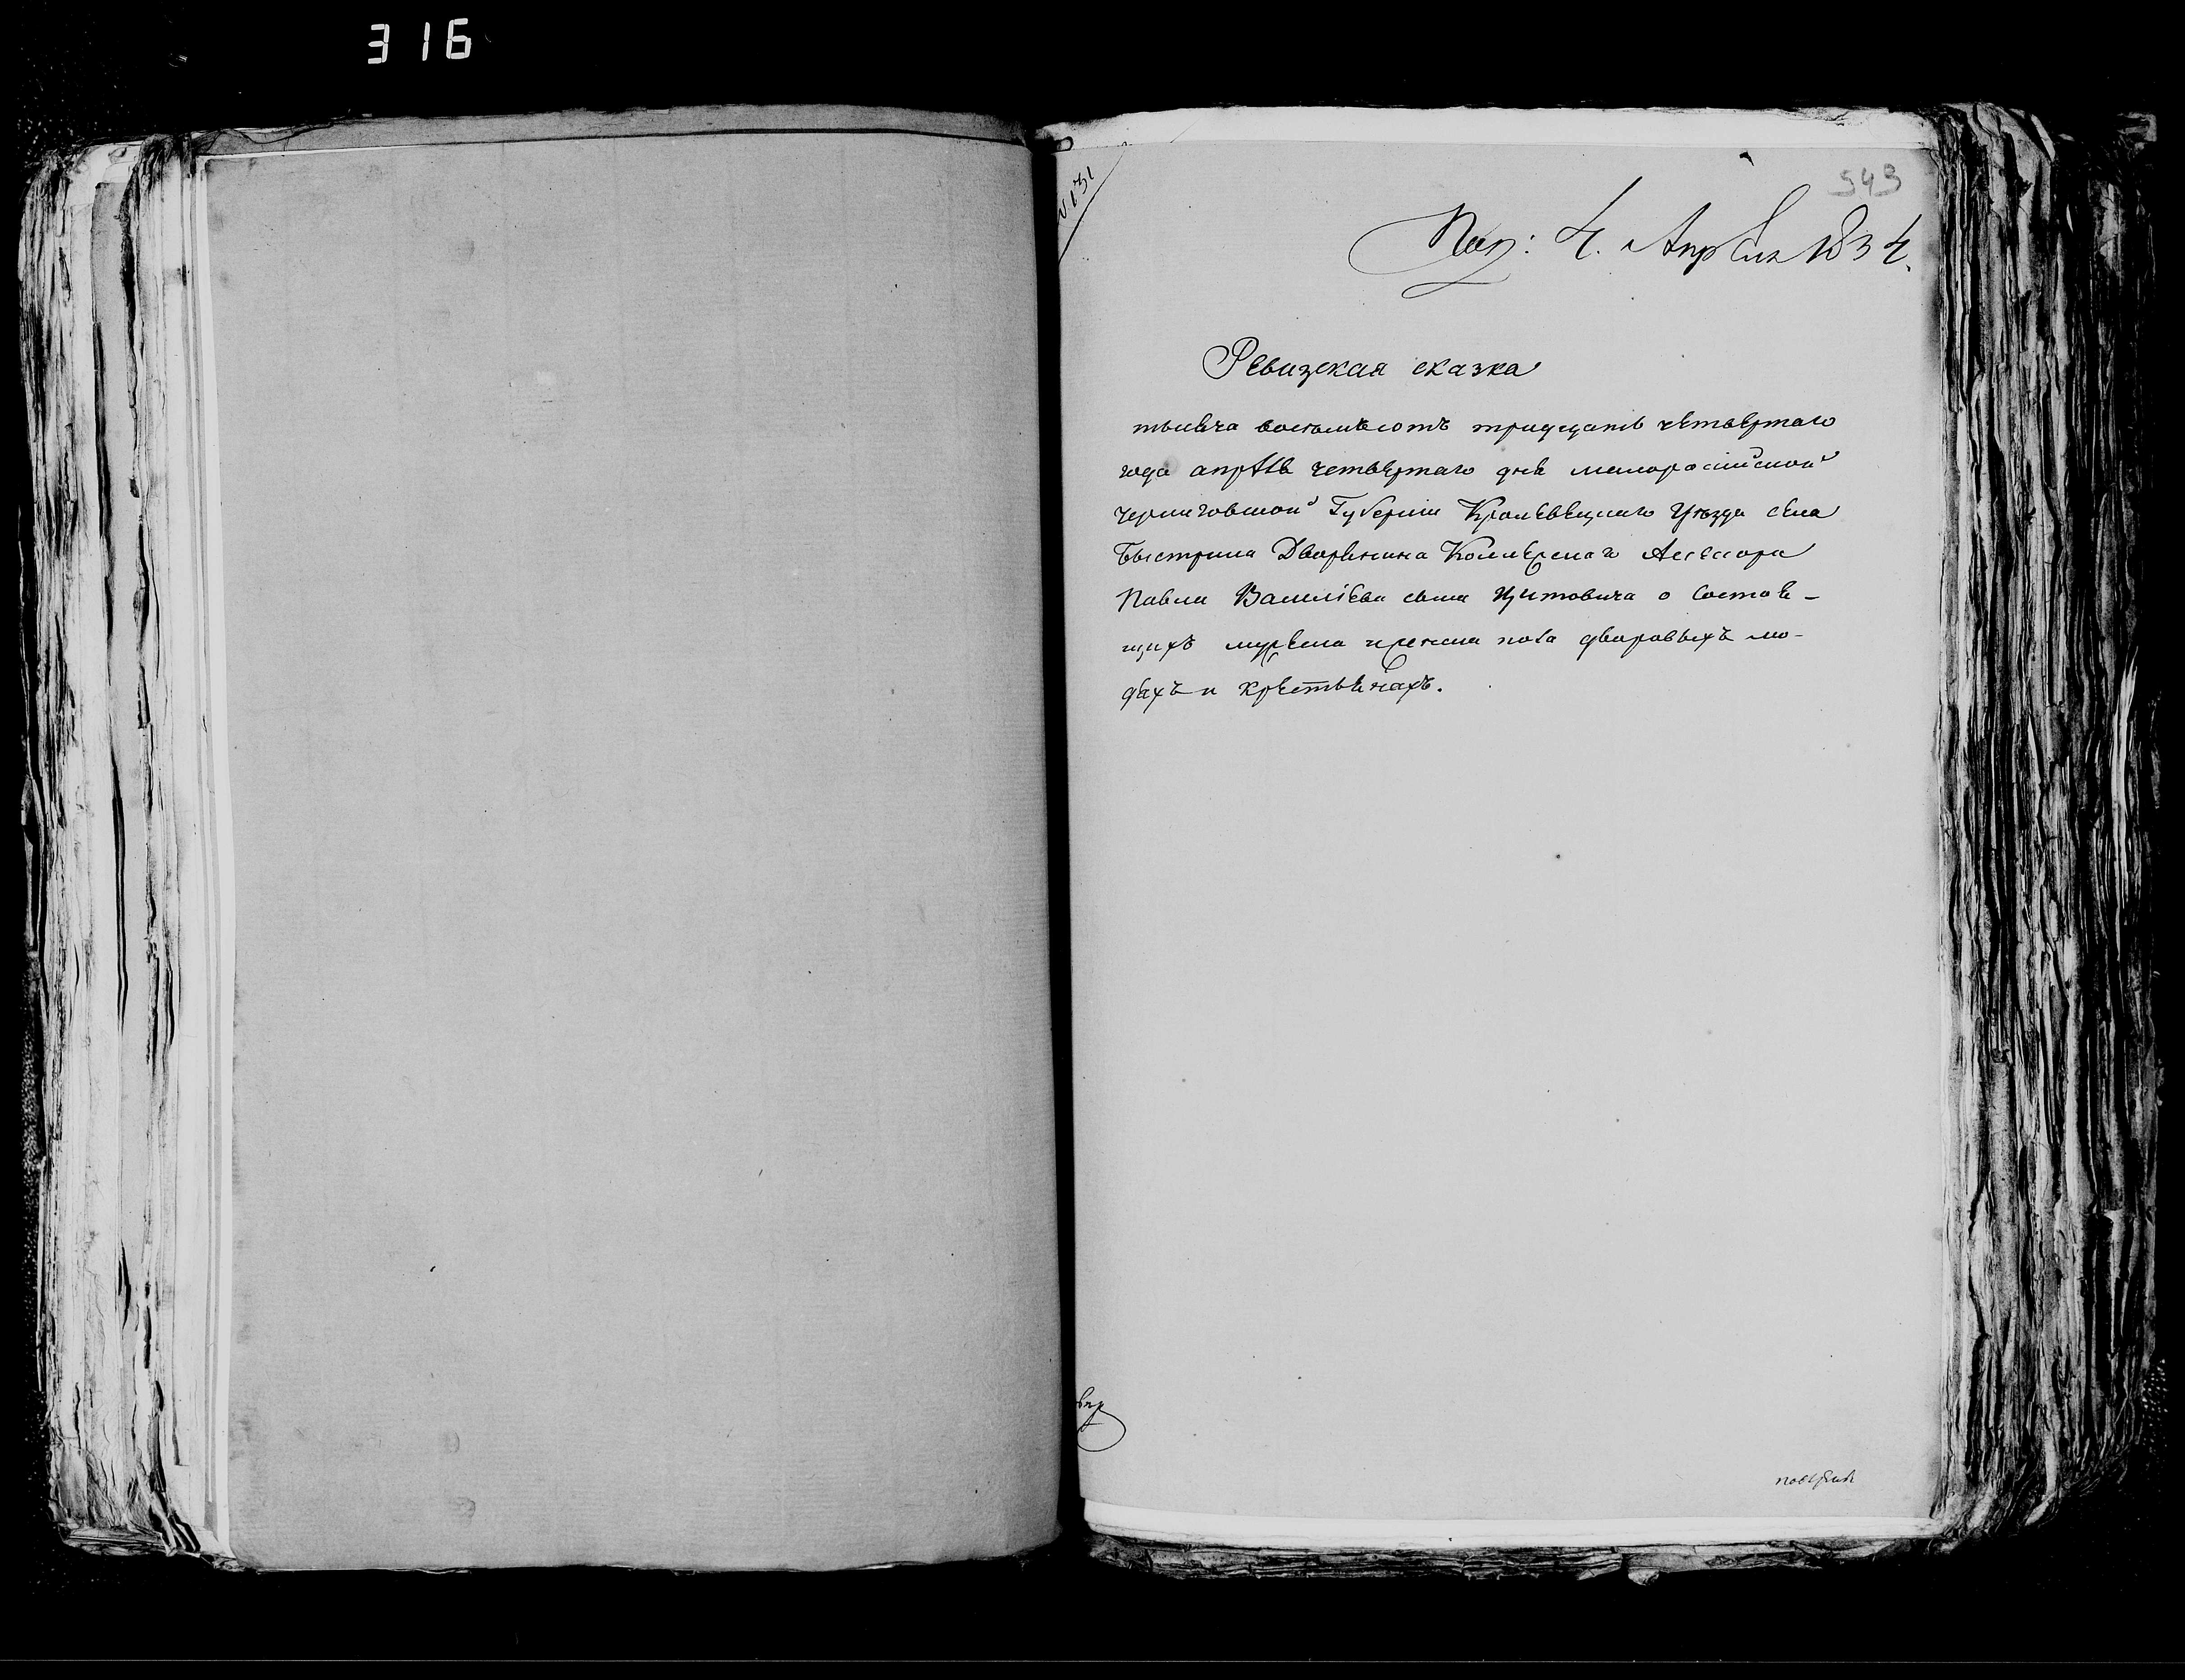 316
№ 131
543
Пол: 4. Апреля 1834.
Ревизская сказка
тысеча восемьсотъ тридцать четвертаго
года апрѣль четвертаго дня малоросійской
черниговской Губерніи Кролевецкаго Уѣзда села
Быстрика Дворянина Колежскаго Асесора
Павла Василіева сына Цитовича о состоя-
щихъ мужеска и женска пола дворовыхъ лю-
дяхъ и крестьянахъ.